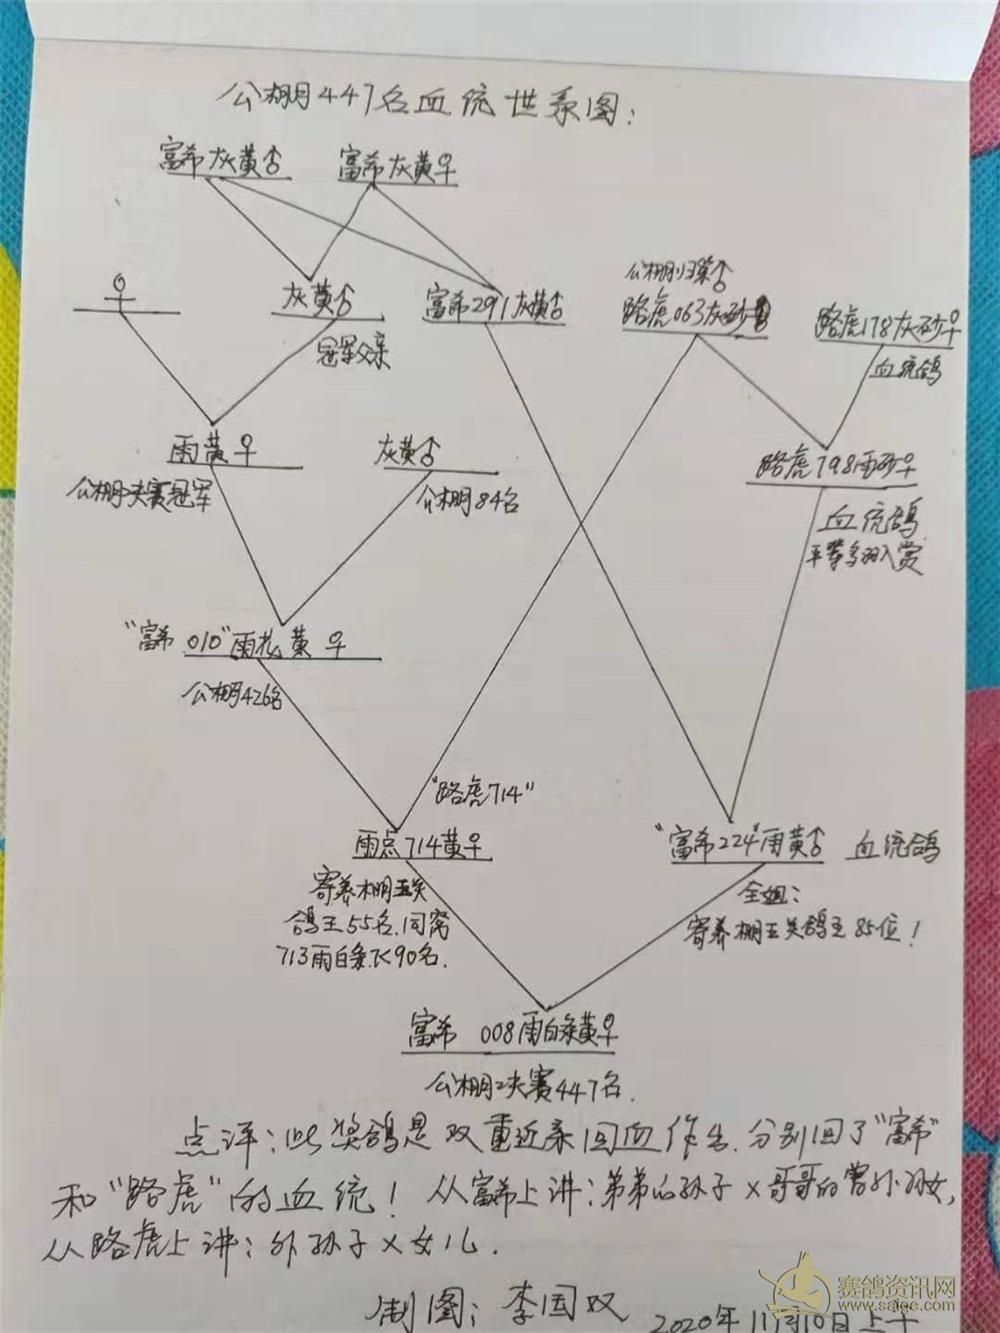 公棚447名血统世系图:
富希灰黄♂
富希灰黄♀
灰黄♂
冠军父亲
富希291灰黄♂
公棚归巢♂
路虎063灰砂
路虎178灰砂♀
血统鸽
雨黄♀
公棚决赛冠军
灰黄♂
公棚84名
路虎798雨砂♀
血统鸽
平辈多羽入赏
"富希 010"雨花黄♀
公棚426名
"路虎714"
雨点714黄♀
寄养棚五关
鸽王55名.同窝
713雨白条飞90名.
"富希224"雨黄♂ 血统鸽
全姐:
寄养棚五关鸽王85位!
富希 008雨白条黄♀
公棚决赛447名.
点评:此奖鸽是双重近亲回血作出.分别回了"富希"
和"路虎"的血统! 从富希上讲:弟弟的孙子×哥哥的曾外孙女,
从路虎上讲:外孙子×女儿.
制图:李国双
2020年11月10日上午
赛鸽资讯网
www.saigc.com